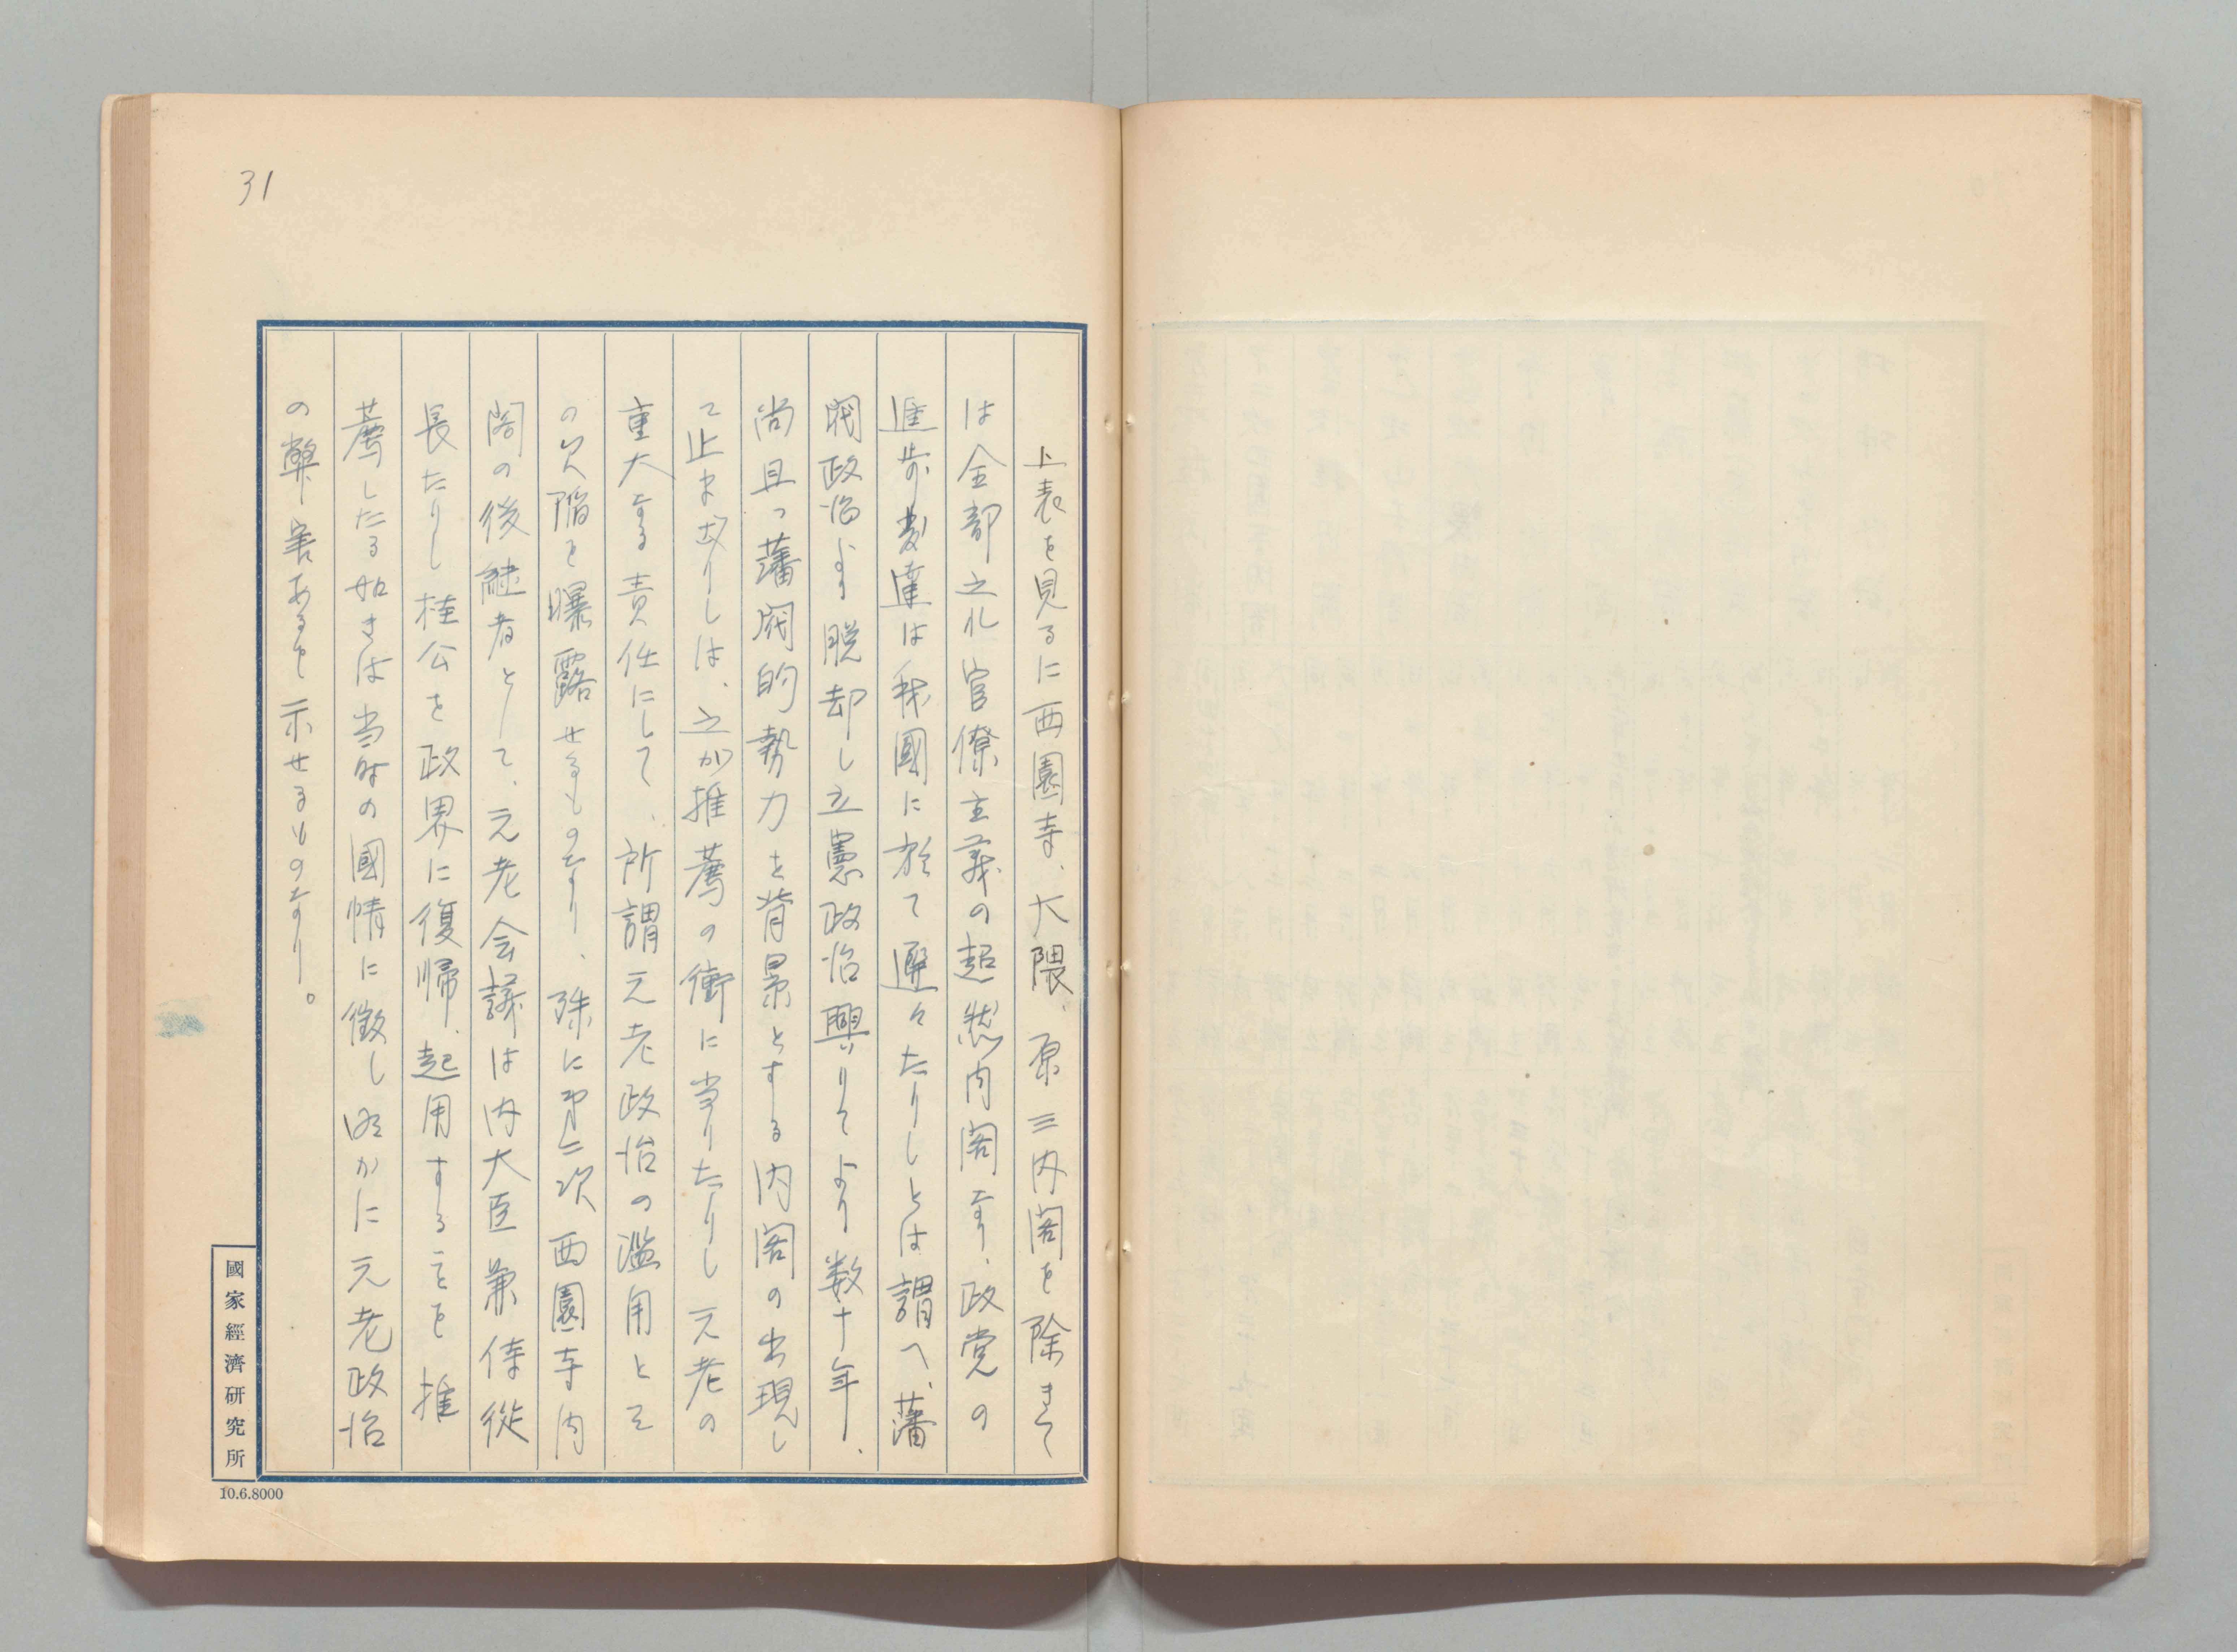 31
上表を見るに西園寺、大隈、原三内閣を除きて
は全部之れ官僚主義の超然内閣なり、政党の
進歩発達は我國に於て遅々たりしとは謂へ、藩
閥政治より脱却し立憲政治興りてより数十年、
尚且つ藩閥的勢力を背景とする内閣の出現し
て止まざりしは、之が推薦の衝に当りたりし元老の
重大なる責任にして、所謂元老政治の濫用とそ
の欠陥を曝露せるものなり、殊に第二次西園寺内
閣の後継者として、元老会議は内大臣兼侍從
長たりし桂公を政界に復帰、起用することを推
薦したる如きは当時の國情に徴し明かに元老政治
の弊害あるを示せるものなり。
國家經濟研究所
10.6.8000